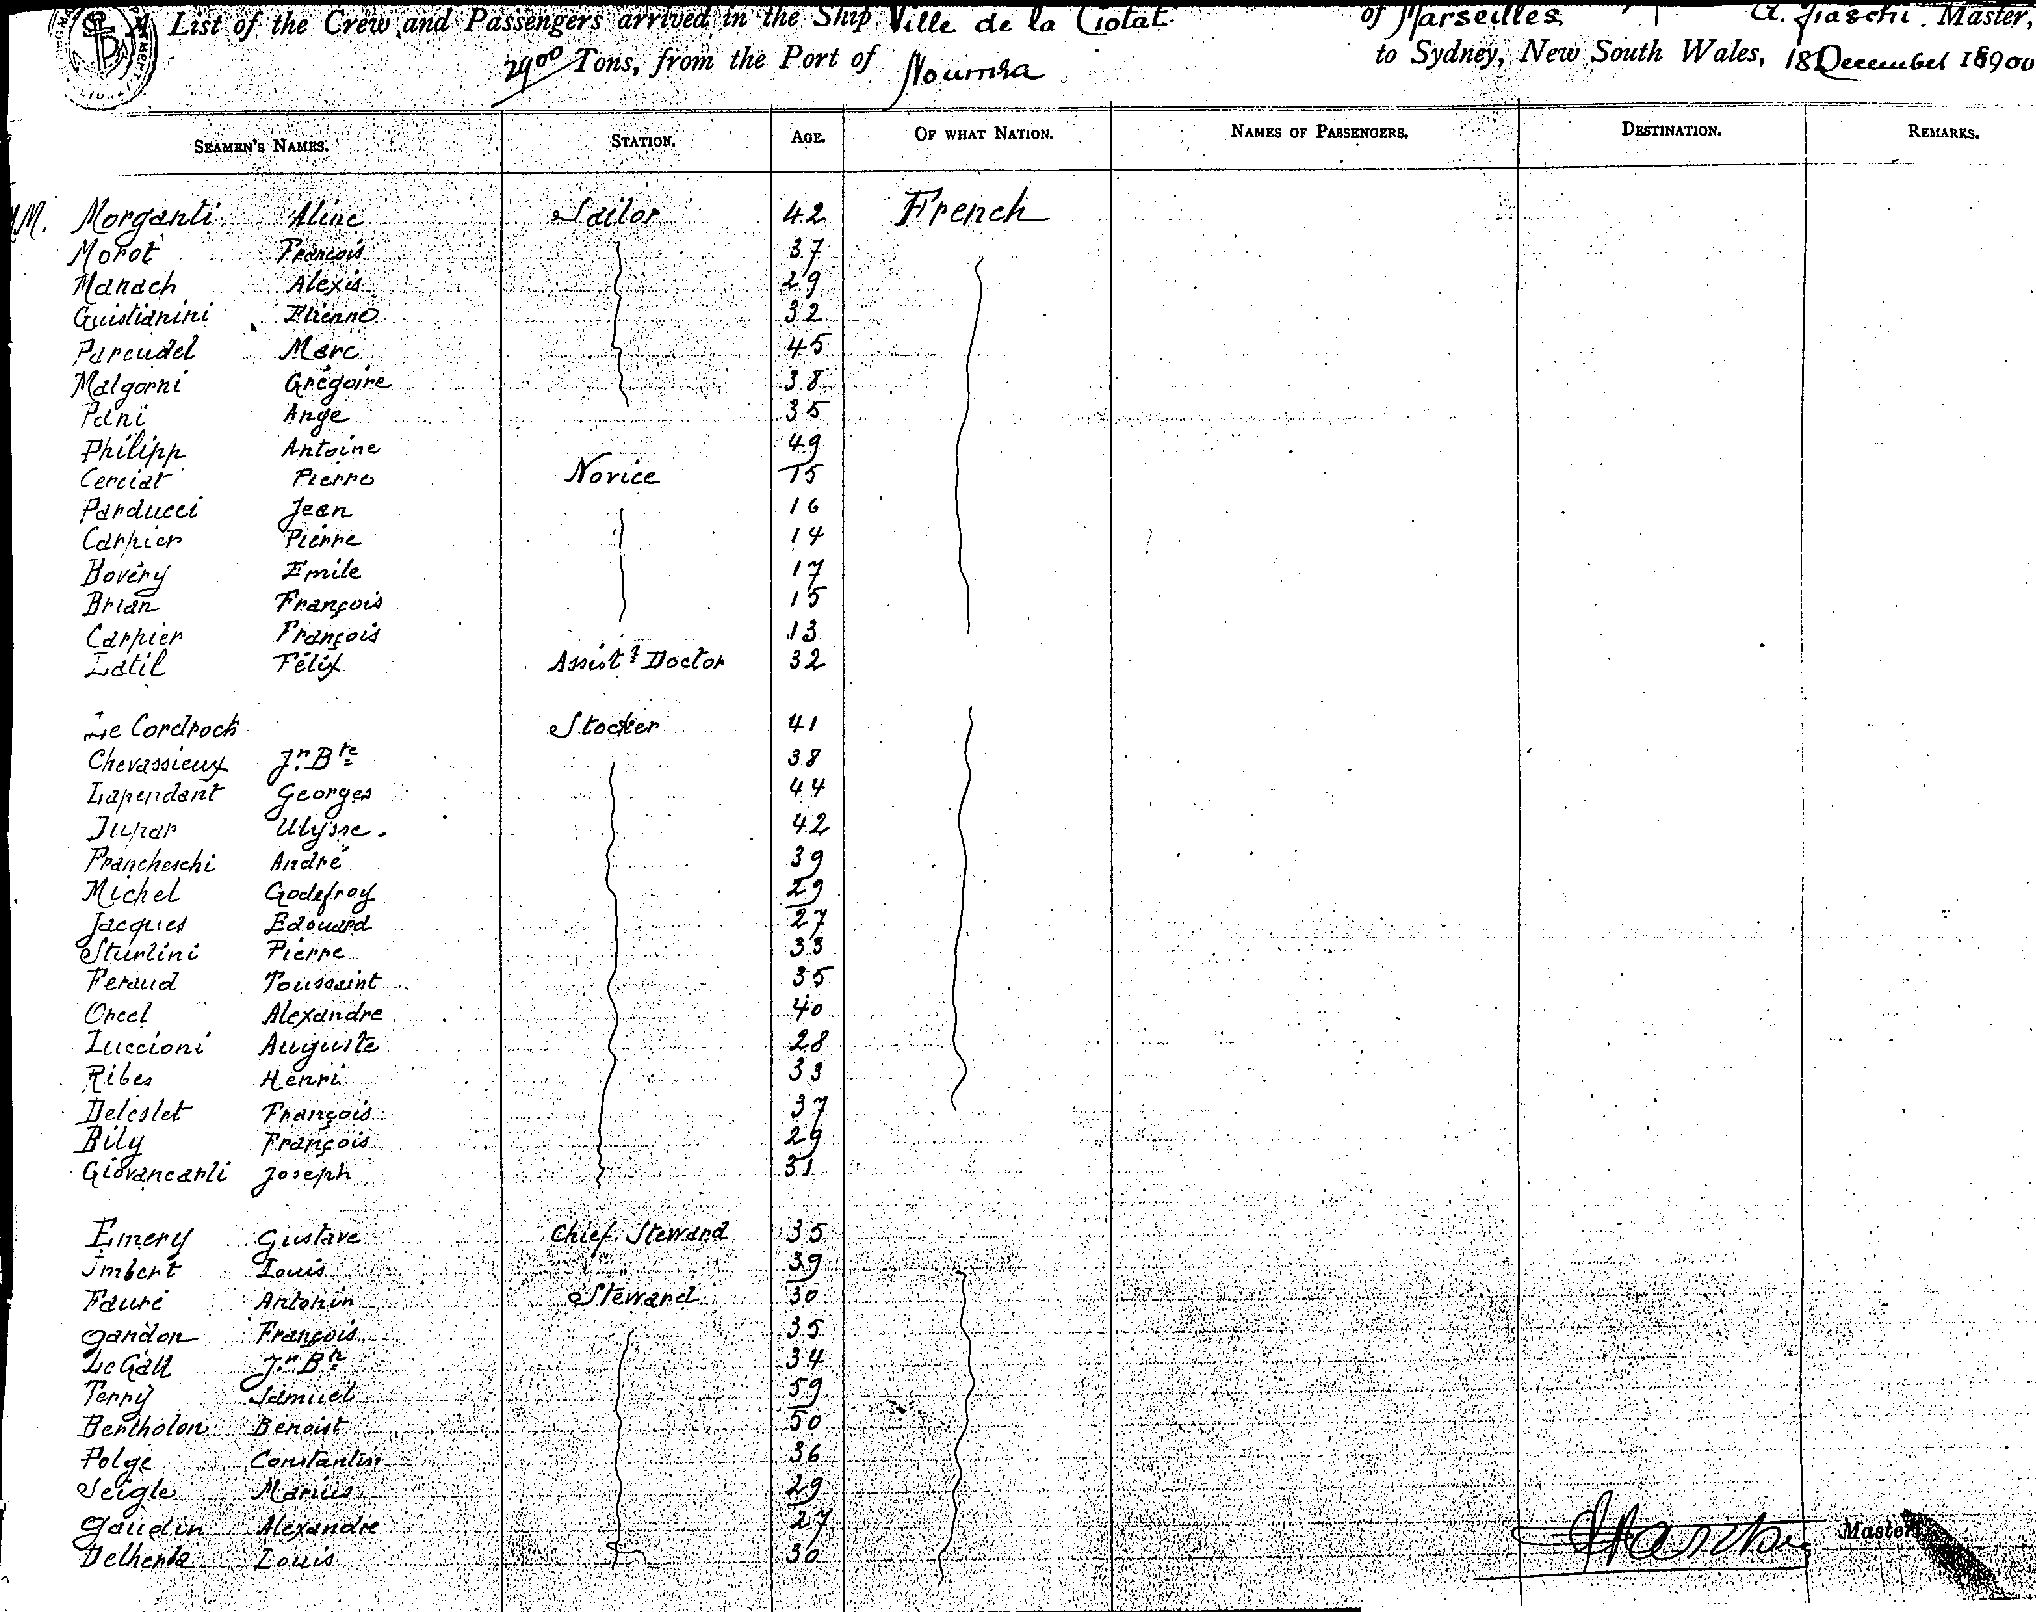 S A List of the Crew and Passengers arrived in the Ship Ville de la Ciotat of Marseilles, Master,
2900 Tons, from the Port of Noumea to Sydney, New South Wales, 18 December 18900
SEAMEN'S NAMES. STATION. AGE. OF WHAT NATION. NAMES OF PASSENGERS. DESTINATION. REMARKS.
MM. Morganti Aline Sailor 42 French
Morot François 37
Manach Alexis 29
Guistianini Etienne 32
Pareudel Marc 45
Malgorni Grégoire 38
Pani Ange 35
Philipp Antoine 49
Cerciat Pierre Novice 15
Parducci Jean 16
Carpier Pierre 14
Bovéry Emile 17
Brian François 15
Carpier François 13
Latil Félix Assist.t Doctor 32
Le Cordroch Stocker 41
Chevassieux Jn Bte 38
Lapendant Georges 44
Jupar Ulysse. 42
Francheschi André 39
Michel Godefroy 29
Jacques Edouard 27
Sturlini Pierre 33
Feraud Toussaint 35
Orcel Alexandre 40
Luccioni Auguste 28
Ribes Henri 33
Deleslet François 37
Bily François 29
Giovancarli Joseph 31
Emery Gustave Chief Steward 35
Imbert Louis " " 39
Fauré Antonin Steward 30
Gandon François 35
Le Gall Jn Bte 34
Terry Samuel 59
Bertholon Benoist 50
Polge Constantin 36
Seigle Marius 29
Gaudin Alexandre 27
Louis 30
Master